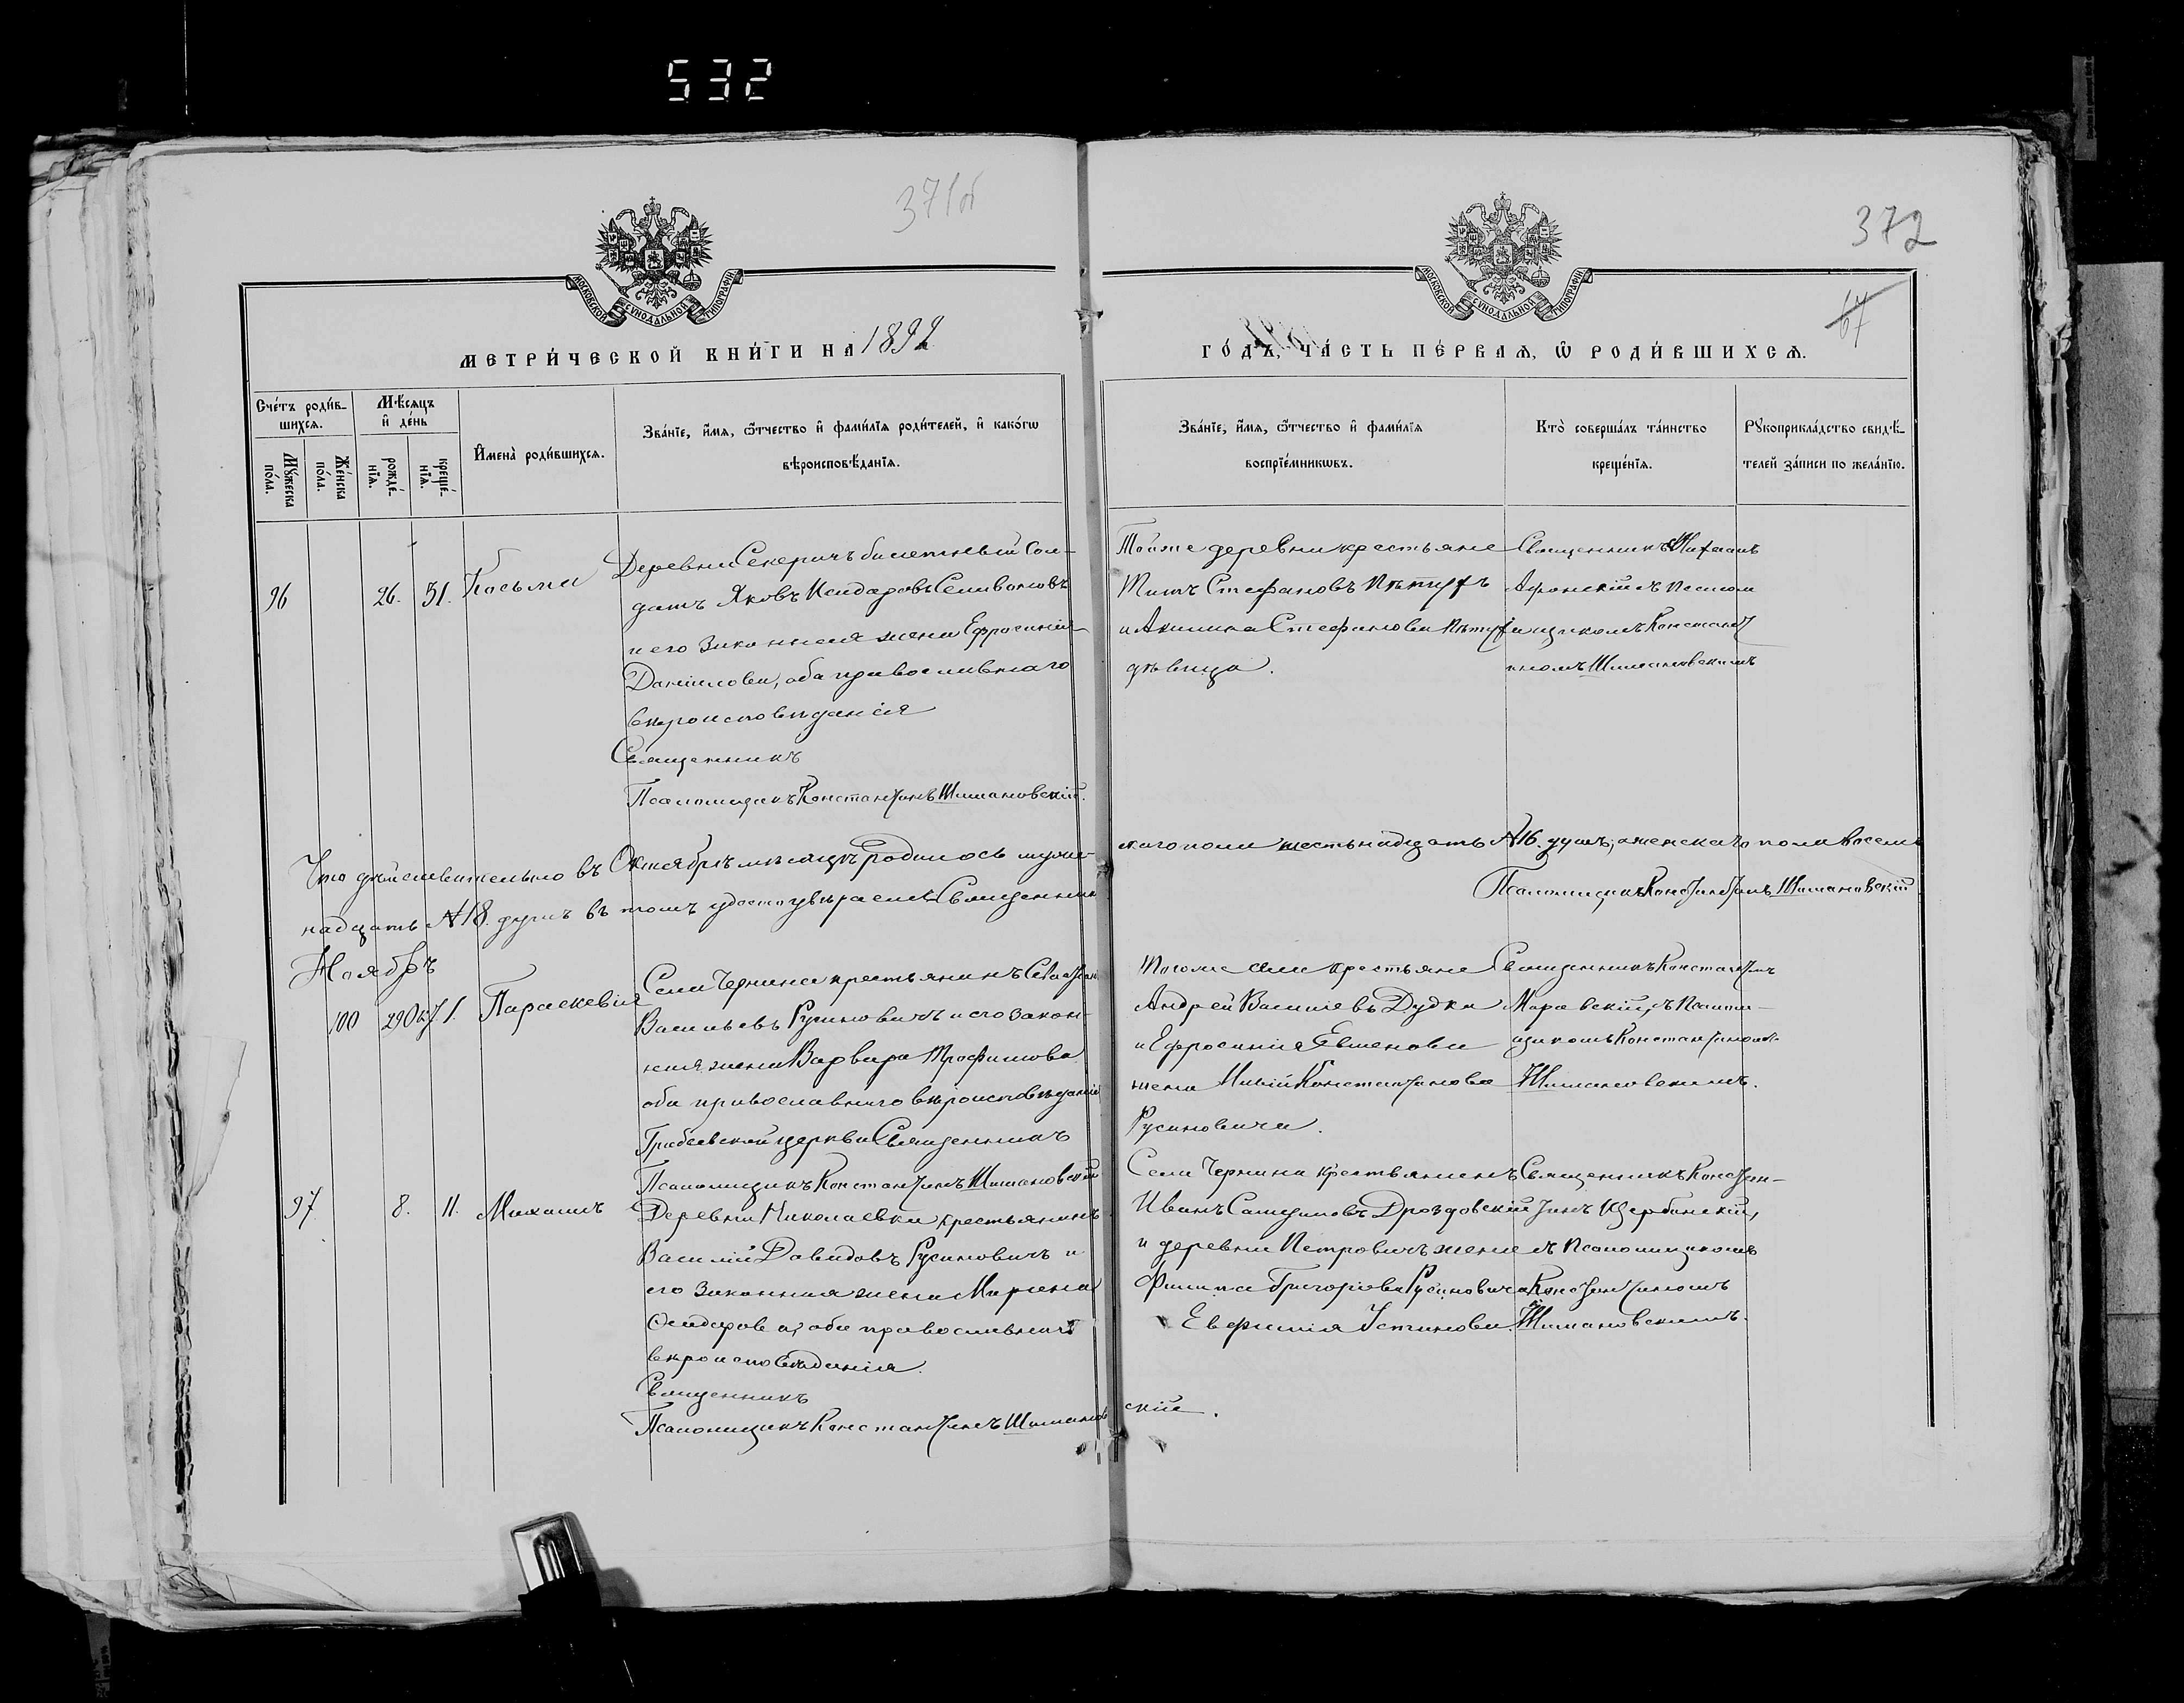 532
371б
372
67
МОСКОВСКОЙ СѴНОДАЛЬНОЙ ТИПОГРАФІИ
МОСКОВСКОЙ СѴНОДАЛЬНОЙ ТИПОГРАФІИ
МЕТРИ́ЧЕСКОЙ КНИ́ГИ НА 1892
ГО́ДЪ, ЧА́СТЬ ПЕ́РВАѦ, Ѿ РОДИ́ВШИХСѦ.
Сче́тъ роди́в-
шихсѧ.
Мꙋ́жеска по́ла.
Же́нска по́ла.
Мѣ́сѧцъ
и҆ де́нь
рожде́-
нїѧ.
креще́-
нїѧ.
И҆мена̀ роди́вшихсѧ.
Зва́нїе, и҆́мѧ, ѻ҆́тчество и҆ фами́лїѧ роди́телей, и҆ како́гѡ
вѣроисповѣ́данїѧ.
Зва́нїе, и҆́мѧ, ѻ҆́тчество и҆ фами́лїѧ
воспрїе́мникѡвъ.
Кто̀ соверша́лъ та́инство
креще́нїѧ.
Рꙋкоприкла́дство свидѣ́-
телей за́писи по жела́нїю.
96
26.
31.
Косьма
Деревни Секеричъ билетный сол-
датъ Яковъ Исидоровъ Селивоновъ
и его законная жена Ефросинія
Даніилова, оба православнаго
вѣроисповѣданія
Священникъ
Псаломщикъ Константинъ Шимановскій.
Тойже деревни крестьяне
Титъ Стефановъ Пѣтухъ
и Акилина Стефанова Пѣтух
дѣвица.
Священникъ Михаилъ
Афонскій съ псалом
щикомъ Констант
иномъ Шимановскимъ
Что дѣйствительно въ Октябрѣ мѣсяцѣ родилось муже-
скаго пола шестьнадцать №16. душъ, а женскаго пола восемь
надцать №18. душъ въ томъ удостовѣряемъ Священникъ
Псаломщикъ Константинъ Шимановскій
Ноябрь
100
29 Окт.
1.
Параскевія
Села Чернина крестьянинъ
Васильевъ Русиновичъ и его закон-
ная жена Варвара Трофимова
оба православнаго вѣроисповѣданія
Грабовской церкви Священникъ
Псаломщикъ Константинъ Шимановскій
Тогоже села крестьяне
Андрей Васильевъ Дудка
и Ефросинія Евменова
жена Константинова
Русиновича.
Священникъ Константинъ
Маравскій, съ псалом-
щикомъ Константиномъ
Шимановскимъ.
97
8.
11.
Михаилъ
Деревни Николаевки крестьянинъ
Василій Давидовъ Русиновичъ и
его законная жена Марина
Сидорова, оба православнаго
вѣроисповѣданія.
Священникъ
Псаломщикъ Константинъ Шимановскій.
Села Чернина крестьянинъ
Иванъ Самуиловъ Дроздовскій
и деревни Петровичъ жена
Филипа Григоріева Русиновича
Евфимія Устинова.
Священникъ Констан-
тинъ Щербинскій,
съ псаломщикомъ
Константиномъ
Шимановскимъ.